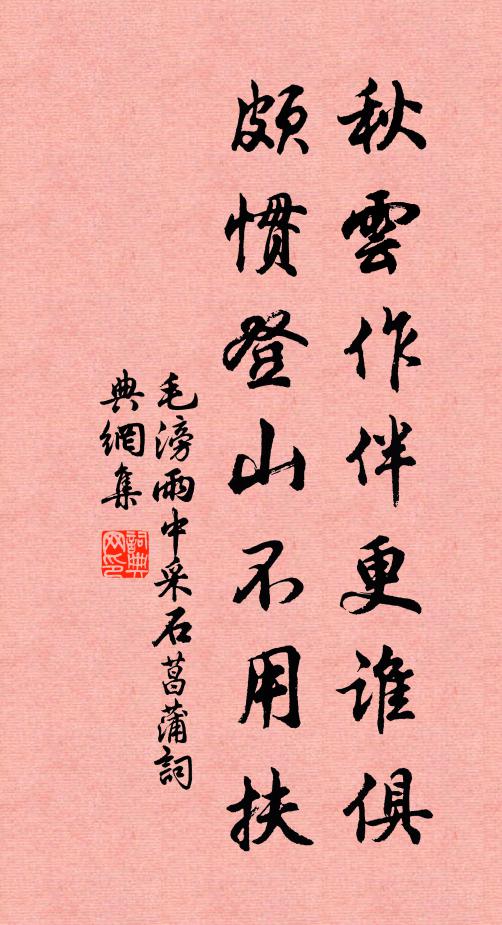 秋雲作伴更誰俱
頗慣登山不用扶
毛滂雨中采石菖蒲詞
典網集
詞典网印